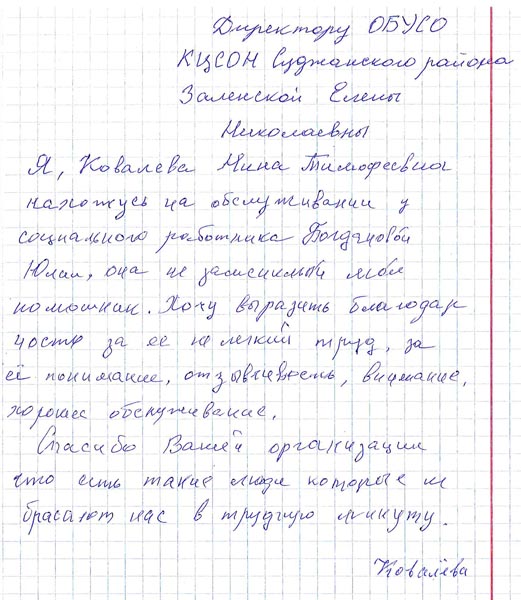 Директору ОБУСО
КЦСОН Суджанского района
Заленской Елены
Николаевны
Я, Ковалева Нина Тимофеевна
нахожусь на обслуживании у
социального работника Богдановой
Юлии, она не заменимый мой
помошник. Хочу выразить благодар
ность за ее не легкий труд, за
её понимание, отзывчивость, внимание,
хорошее обслуживание.
Спасибо Вашей организации
что есть такие люди которые не
бросают нас в трудную минуту.
Ковалёва